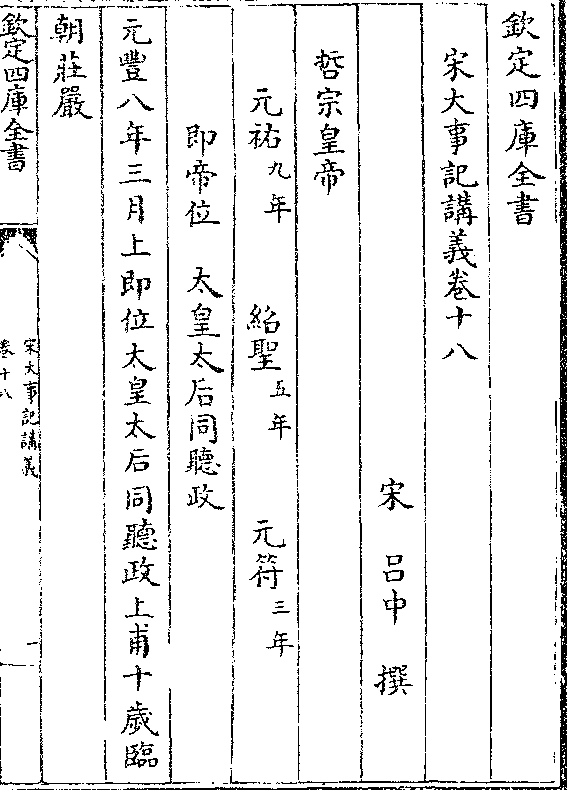 欽定四庫全書
宋大事記講義卷十八
宋 呂中 撰
哲宗皇帝
元祐九年 紹聖五年 元符三年
即帝位 太皇太后同聽政
元豐八年三月上即位太皇太后同聽政上甫十歲臨
朝莊嚴
欽定四庫全書
宋大事記講義
卷十八
一